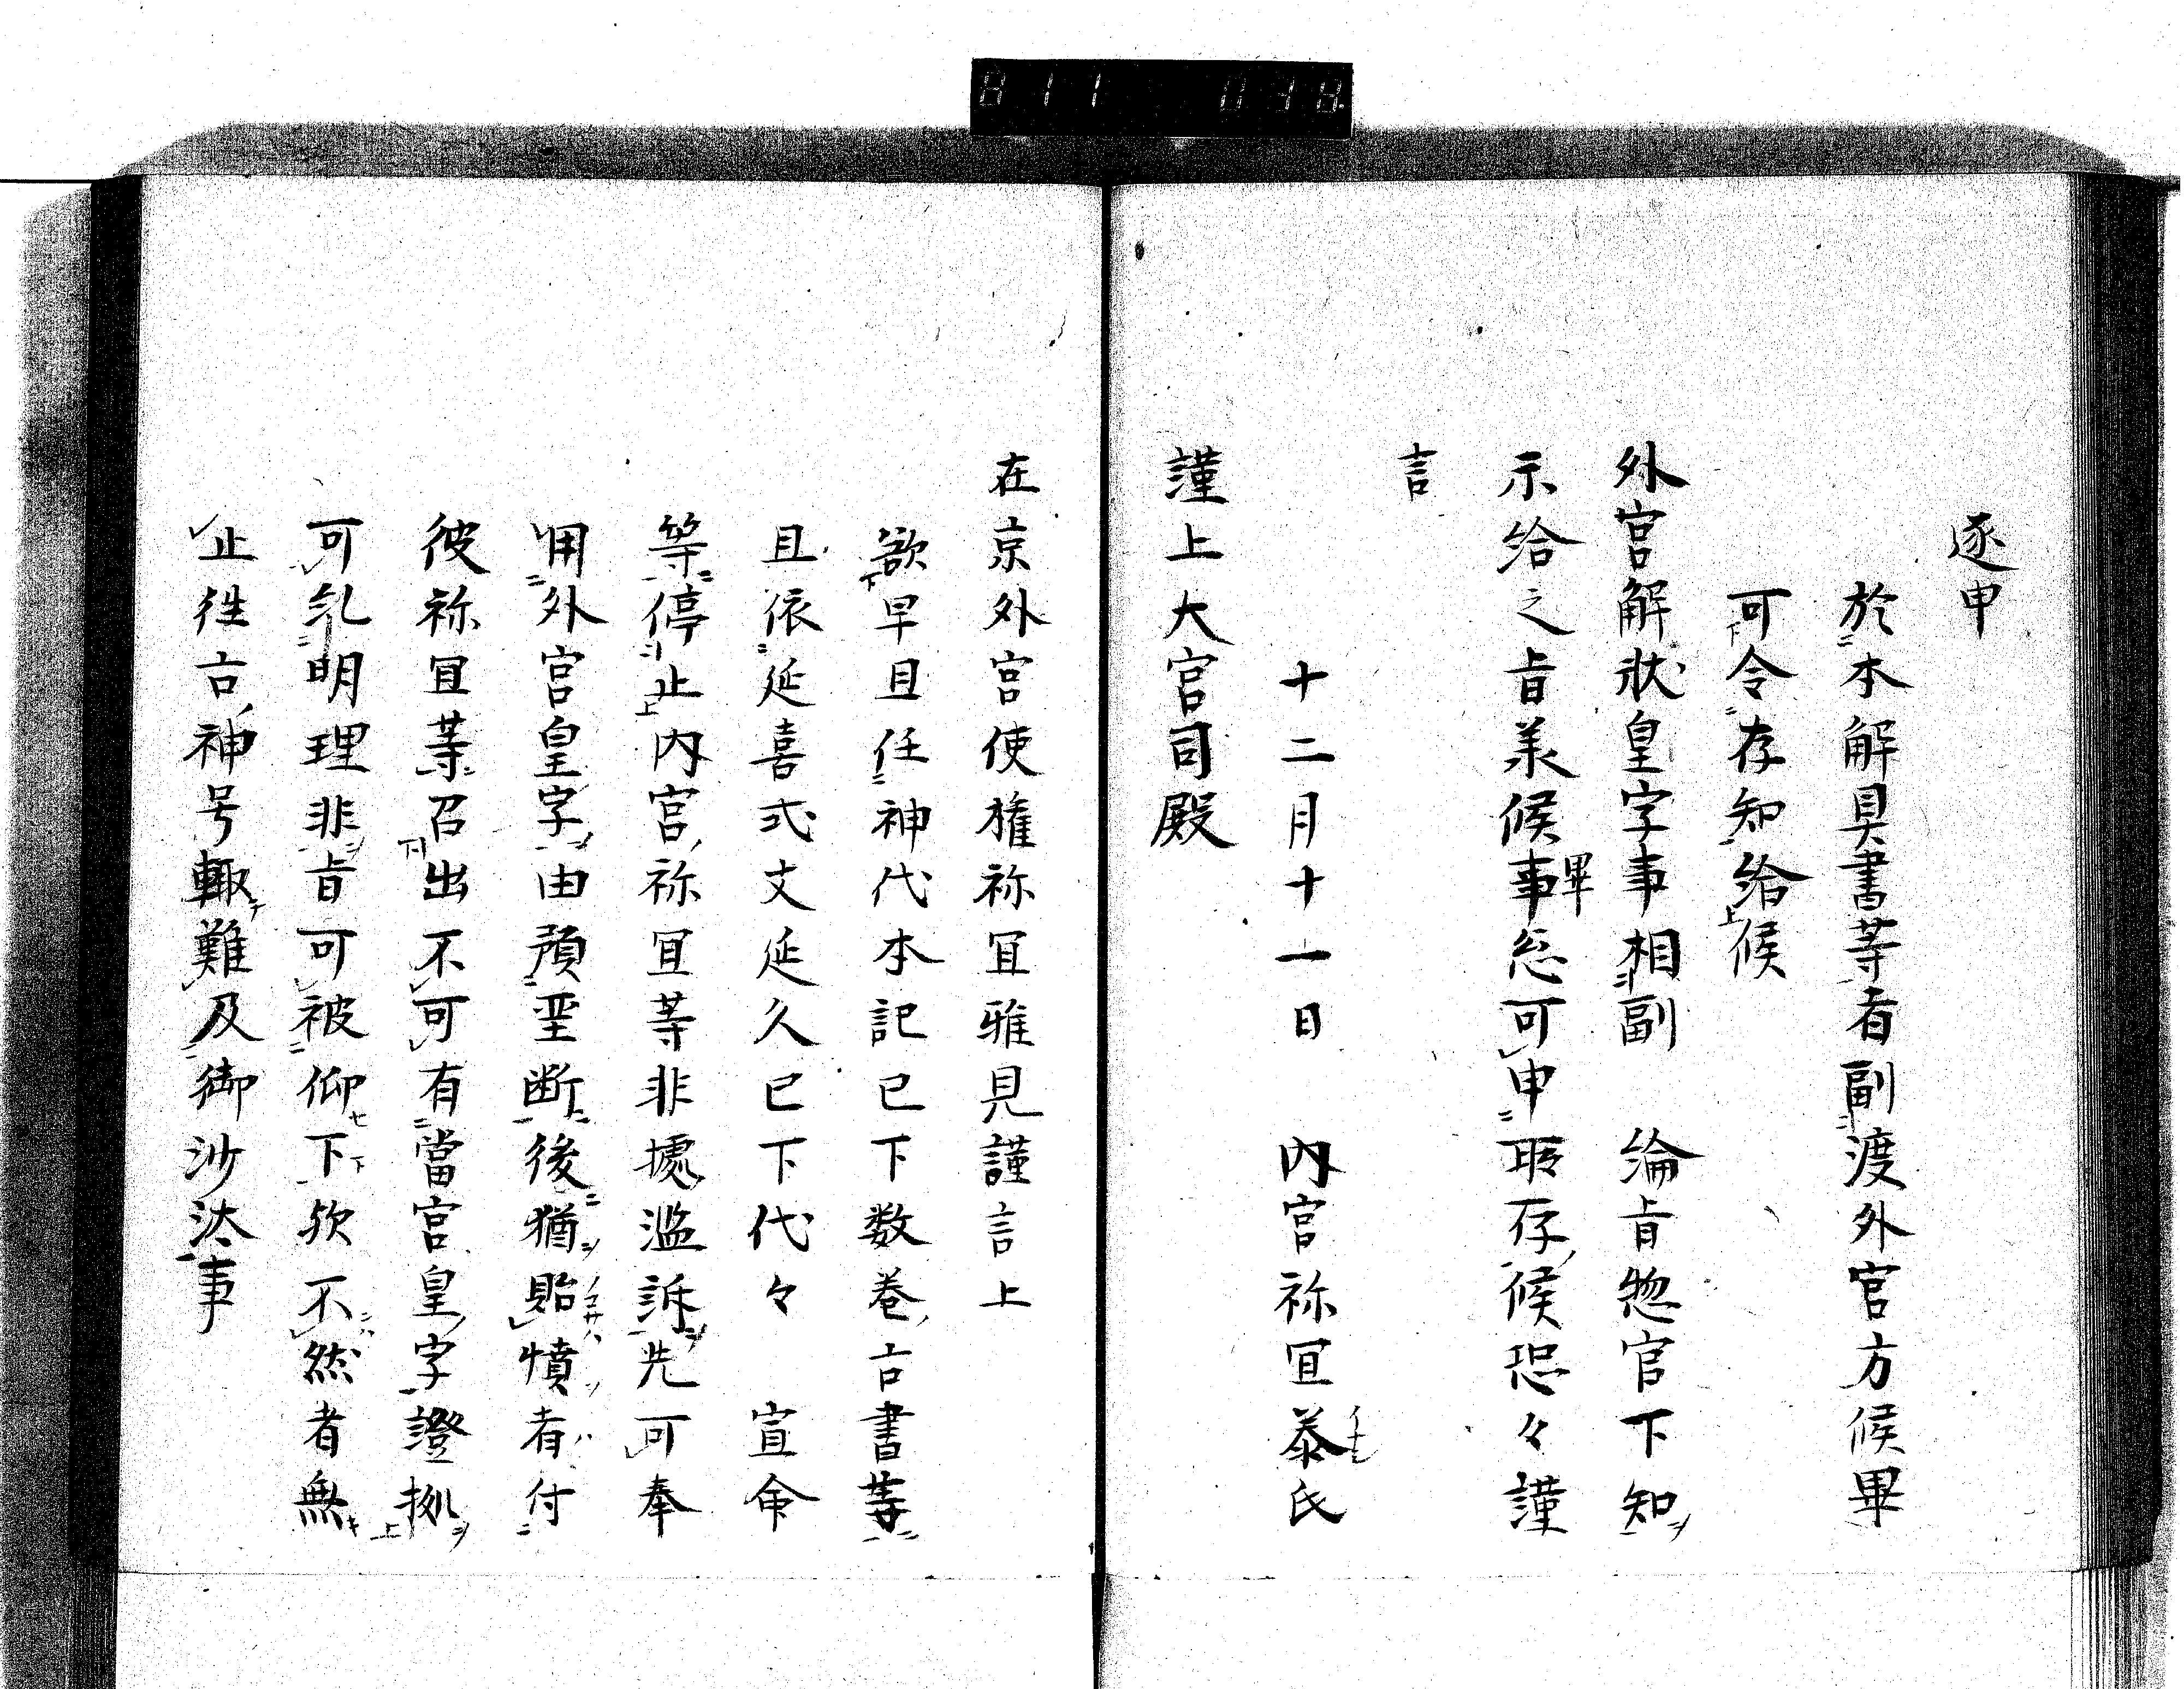 逐申
於本解具書等者副渡外宮方候畢
可令存知給候
外宮解状皇字事相副　綸旨惣官下知
示給之旨承候畢事忩可申所存候恐々謹
言
十二月十一日　内宮祢宜泰氏
謹上大宮司殿
在京外宮使権祢宜雅見謹言上
欲早且任神代本記已下数巻古書等
且依延喜式文延久已下代々　宣命
等停止内宮祢宜等非拠濫訴先可奉
用外宮皇字由預聖断後猶貽憤者付
彼祢宜等召出不可有當宮皇字證拠
可糺明理非旨可被仰下欤不然者無
止往古神号輙難及御沙汰事